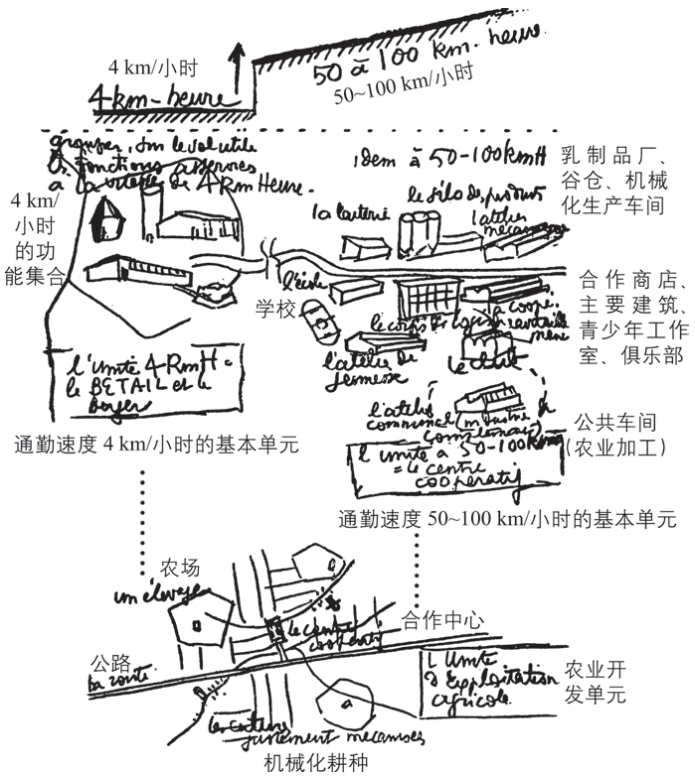 4 km/小时
4 km-heure
50 à 100 km-heure
50~100 km/小时
grouper, sur le val utile
fonctions
à la vitesse de 4 Km Heure.
4 km/
小时
的功
能集合
idem à 50-100 kmH
乳制品厂、
谷仓、机械
化生产车间
la laiterie
le silo des produits
l'atelier
mécanique
l'école
学校
le corps de logis
la coopé.
合作商店、
主要建筑、
青少年工作
室、俱乐部
l'atelier de
jeunesse
le club
l'unité 4 KmH =
le BETAIL et le
berger
通勤速度 4 km/小时的基本单元
l'atelier
communal
公共车间
(农业加工)
l'unité à 50-100 Km
= le centre
coopératif
通勤速度 50~100 km/小时的基本单元
农场
un élevage
le centre
coopératif
合作中心
公路
la route
L'Unité
d'Exploitation
agricole
农业开
发单元
les cultures
justement mécanisées
机械化耕种